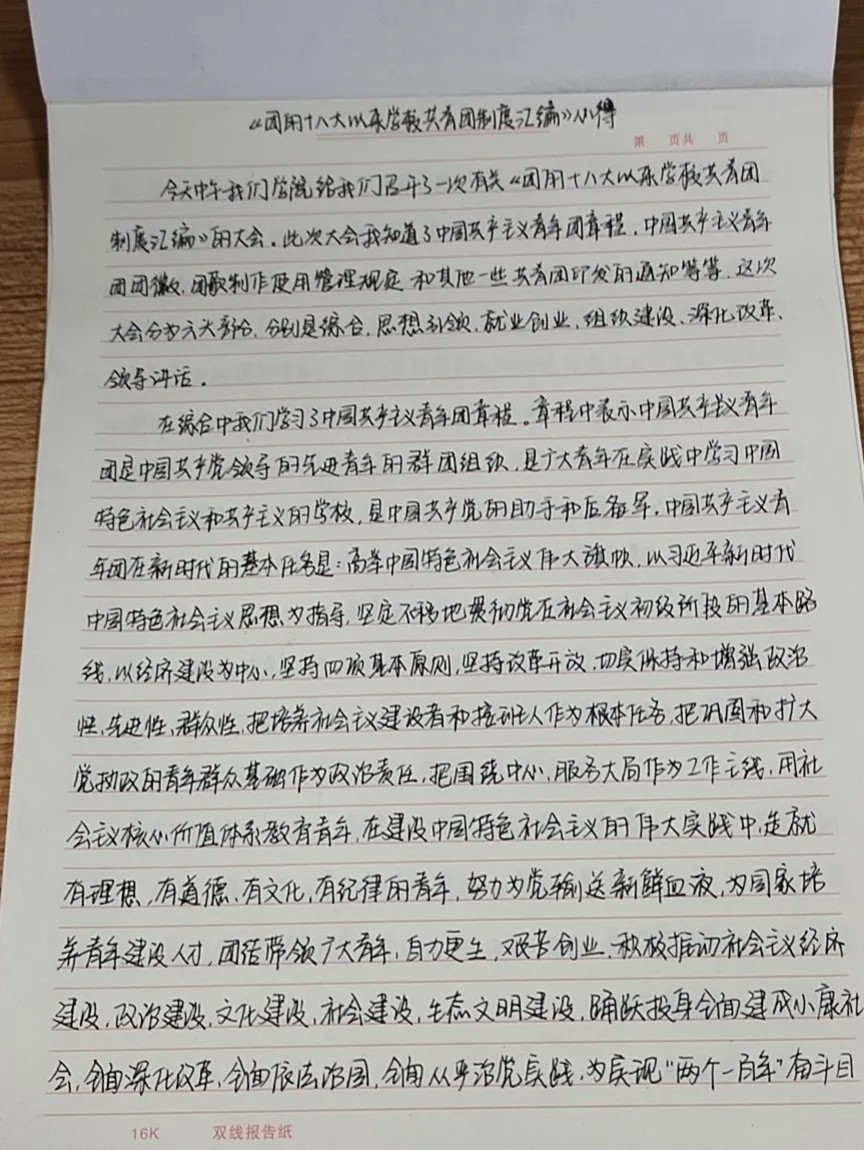 《团的十八大以来学校共青团制度汇编》心得
第 页共 页
今天中午我们学院给我们召开了一次有关《团的十八大以来学校共青团
制度汇编》的大会。此次大会我知道了中国共产主义青年团章程,中国共产主义青年
团团徽、团歌制作使用管理规定和其他一些共青团印发的通知等等。这次
大会分为六大部分,分别是综合、思想引领、就业创业、组织建设、深化改革、
领导讲话。
在综合中我们学习了中国共产主义青年团章程。章程中表示中国共产主义青年
团是中国共产党领导的先进青年的群团组织,是广大青年在实践中学习中国
特色社会主义和共产主义的学校,是中国共产党的助手和后备军。中国共产主义青
年团在新时代的基本任务是:高举中国特色社会主义伟大旗帜,以习近平新时代
中国特色社会主义思想为指导,坚定不移地贯彻党在社会主义初级阶段的基本路
线,以经济建设为中心,坚持四项基本原则,坚持改革开放,切实保持和增强政治
性、先进性、群众性,把培养社会主义建设者和接班人作为根本任务,把巩固和扩大
党执政的青年群众基础作为政治责任,把围绕中心、服务大局作为工作主线,用社
会主义核心价值体系教育青年,在建设中国特色社会主义的伟大实践中,造就
有理想、有道德、有文化、有纪律的青年,努力为党输送新鲜血液,为国家培
养青年建设人才,团结带领广大青年,自力更生,艰苦创业,积极推动社会主义经济
建设、政治建设、文化建设、社会建设、生态文明建设,踊跃投身全面建成小康社
会、全面深化改革、全面依法治国、全面从严治党实践,为实现“两个一百年”奋斗目
16K 双线报告纸